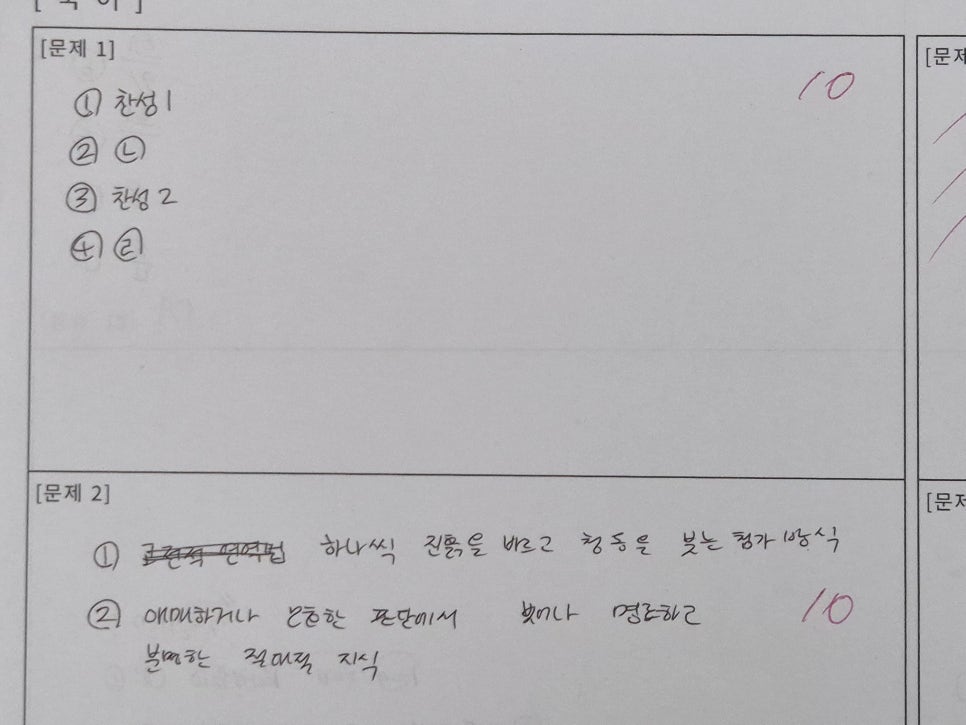 [국어]
[문제 1]
① 찬성 1
10
② ㉡
③ 찬성 2
④ ㉣
[문제 2]
① 하나씩 진흙을 바르고 청동을 붓는 첨가 방식
② 애매하거나 모호한 판단에서 벗어나 명료하고
10
분명한 절대적 지식
[문제
[문제